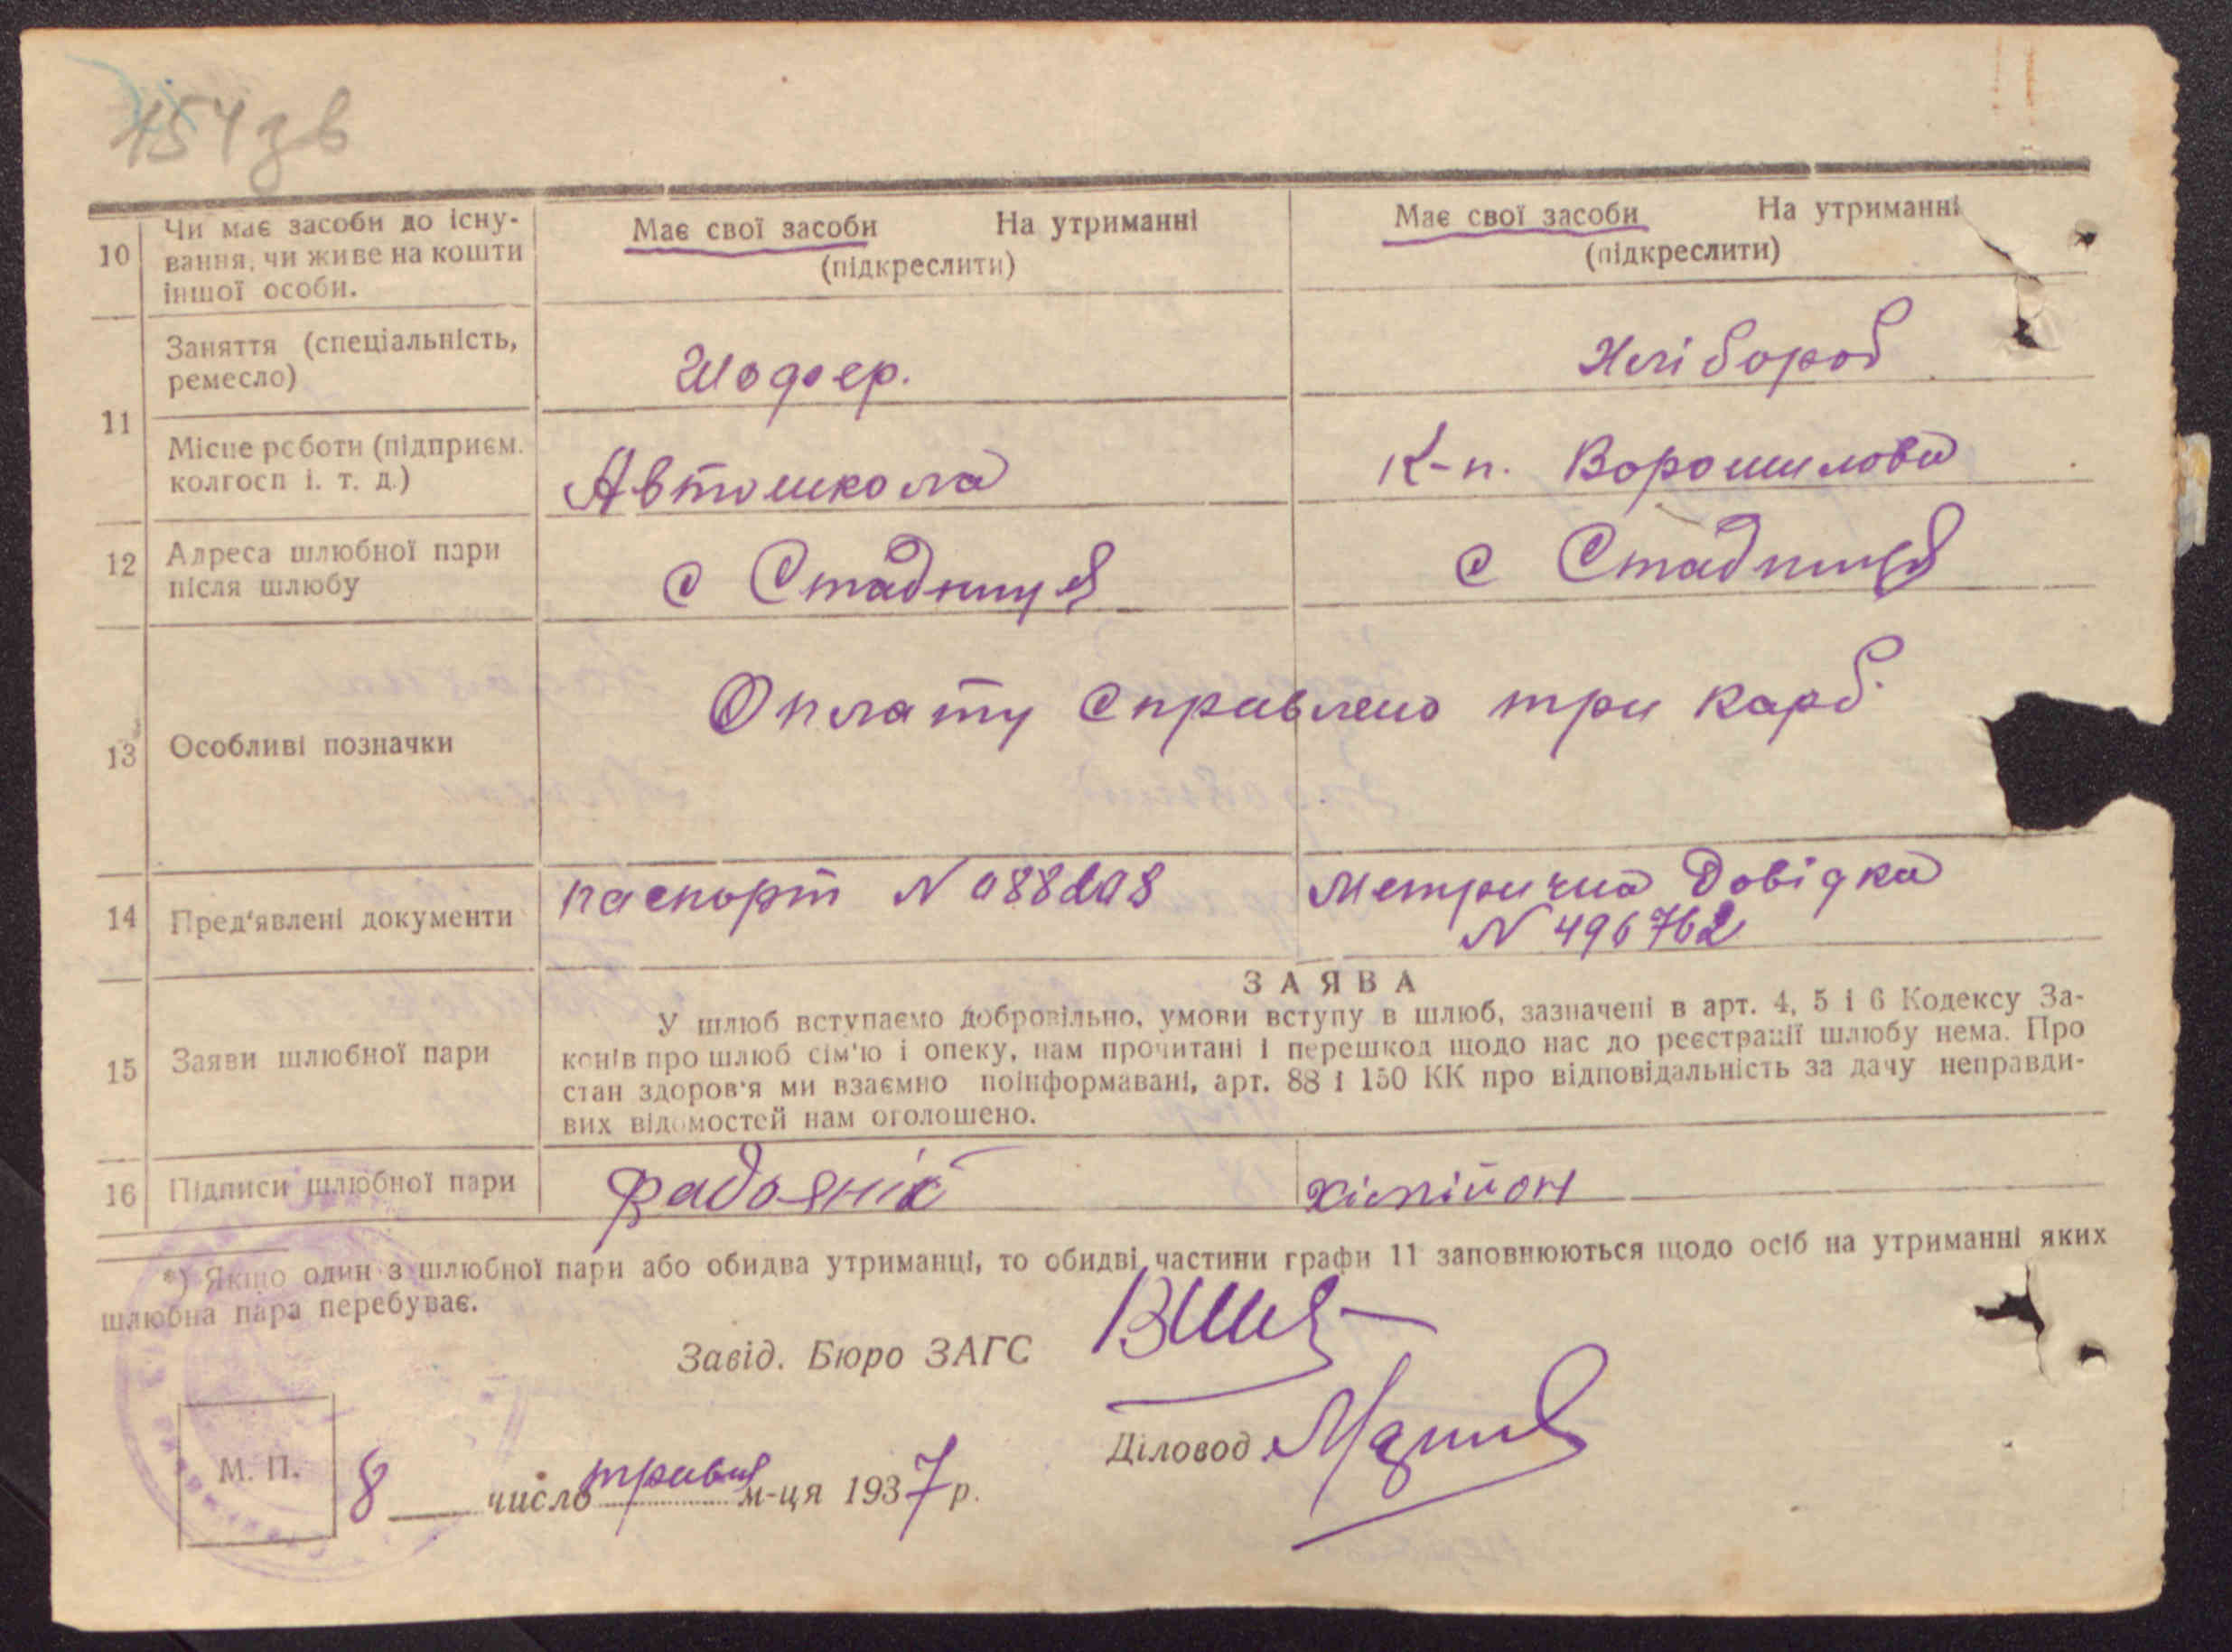 154 зв
10 Чи має засоби до існу-
вання, чи живе на кошти
іншої особи.
Має свої засоби На утриманні
(підкреслити)
Має свої засоби На утриманні
(підкреслити)
11 Заняття (спеціальність,
ремесло)
Шофер.
Хлібороб
Місце роботи (підприєм.
колгосп і. т. д.)
Автошкола
К-п. Ворошилова
12 Адреса шлюбної пари
після шлюбу
с Стадниця
с Стадниця
13 Особливі позначки
Оплату справлено три карб.
14 Пред'явлені документи
паспорт N
Метрична Довідка
N 496762
15 Заяви шлюбної пари
ЗАЯВА
У шлюб вступаємо добровільно, умови вступу в шлюб, зазначені в арт. 4, 5 і 6 Кодексу За-
конів про шлюб сім'ю і опеку, нам прочитані і перешкод щодо нас до реєстрації шлюбу нема. Про
стан здоров'я ми взаємно поінформавані, арт. 88 і 150 КК про відповідальність за дачу неправди-
вих відомостей нам оголошено.
16 Підписи шлюбної пари
*) Якщо один з шлюбної пари або обидва утриманці, то обидві частини графи 11 заповнюються щодо осіб на утриманні яких
шлюбна пара перебуває.
Завід. Бюро ЗАГС
Діловод
М. П.
8 число травня м-ця 1937 р.